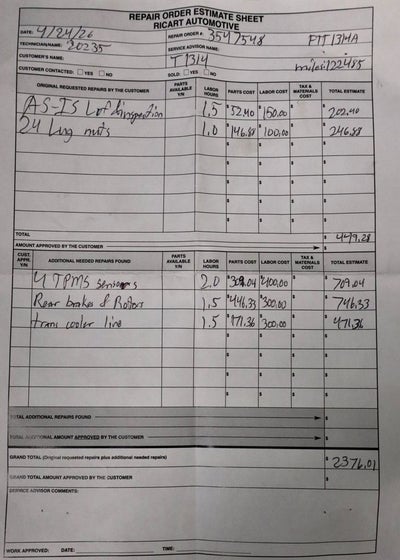 REPAIR ORDER ESTIMATE SHEET
RICART AUTOMOTIVE
DATE: 4/24/26 REPAIR ORDER #: 3547548 PTT1314A
TECHNICIAN/NAME: 20235 SERVICE ADVISOR NAME:
CUSTOMER'S NAME: T1314 miles:122485
CUSTOMER CONTACTED: YES NO SOLD: YES NO
ORIGINAL REQUESTED REPAIRS BY THE CUSTOMER PARTS AVAILABLE Y/N LABOR HOURS PARTS COST LABOR COST TAX & MATERIALS COST TOTAL ESTIMATE
AS-IS Lof & inspection 1.5 $52.40 $150.00 $ $202.40
24 Lug nuts 1.0 $146.88 $100.00 $ $246.88
TOTAL $449.28
AMOUNT APPROVED BY THE CUSTOMER $
CUST. APPR. Y/N ADDITIONAL NEEDED REPAIRS FOUND PARTS AVAILABLE Y/N LABOR HOURS PARTS COST LABOR COST TAX & MATERIALS COST TOTAL ESTIMATE
4 TPMS sensors 2.0 $309.04 $400.00 $ $709.04
Rear brakes & Rotors 1.5 $446.33 $300.00 $ $746.33
trans cooler line 1.5 $171.36 $300.00 $ $471.36
TOTAL ADDITIONAL REPAIRS FOUND $
TOTAL ADDITIONAL AMOUNT APPROVED BY THE CUSTOMER $
GRAND TOTAL (Original requested repairs plus additional needed repairs) $2376.01
GRAND TOTAL AMOUNT APPROVED BY THE CUSTOMER $
SERVICE ADVISOR COMMENTS:
WORK APPROVED: DATE: TIME: